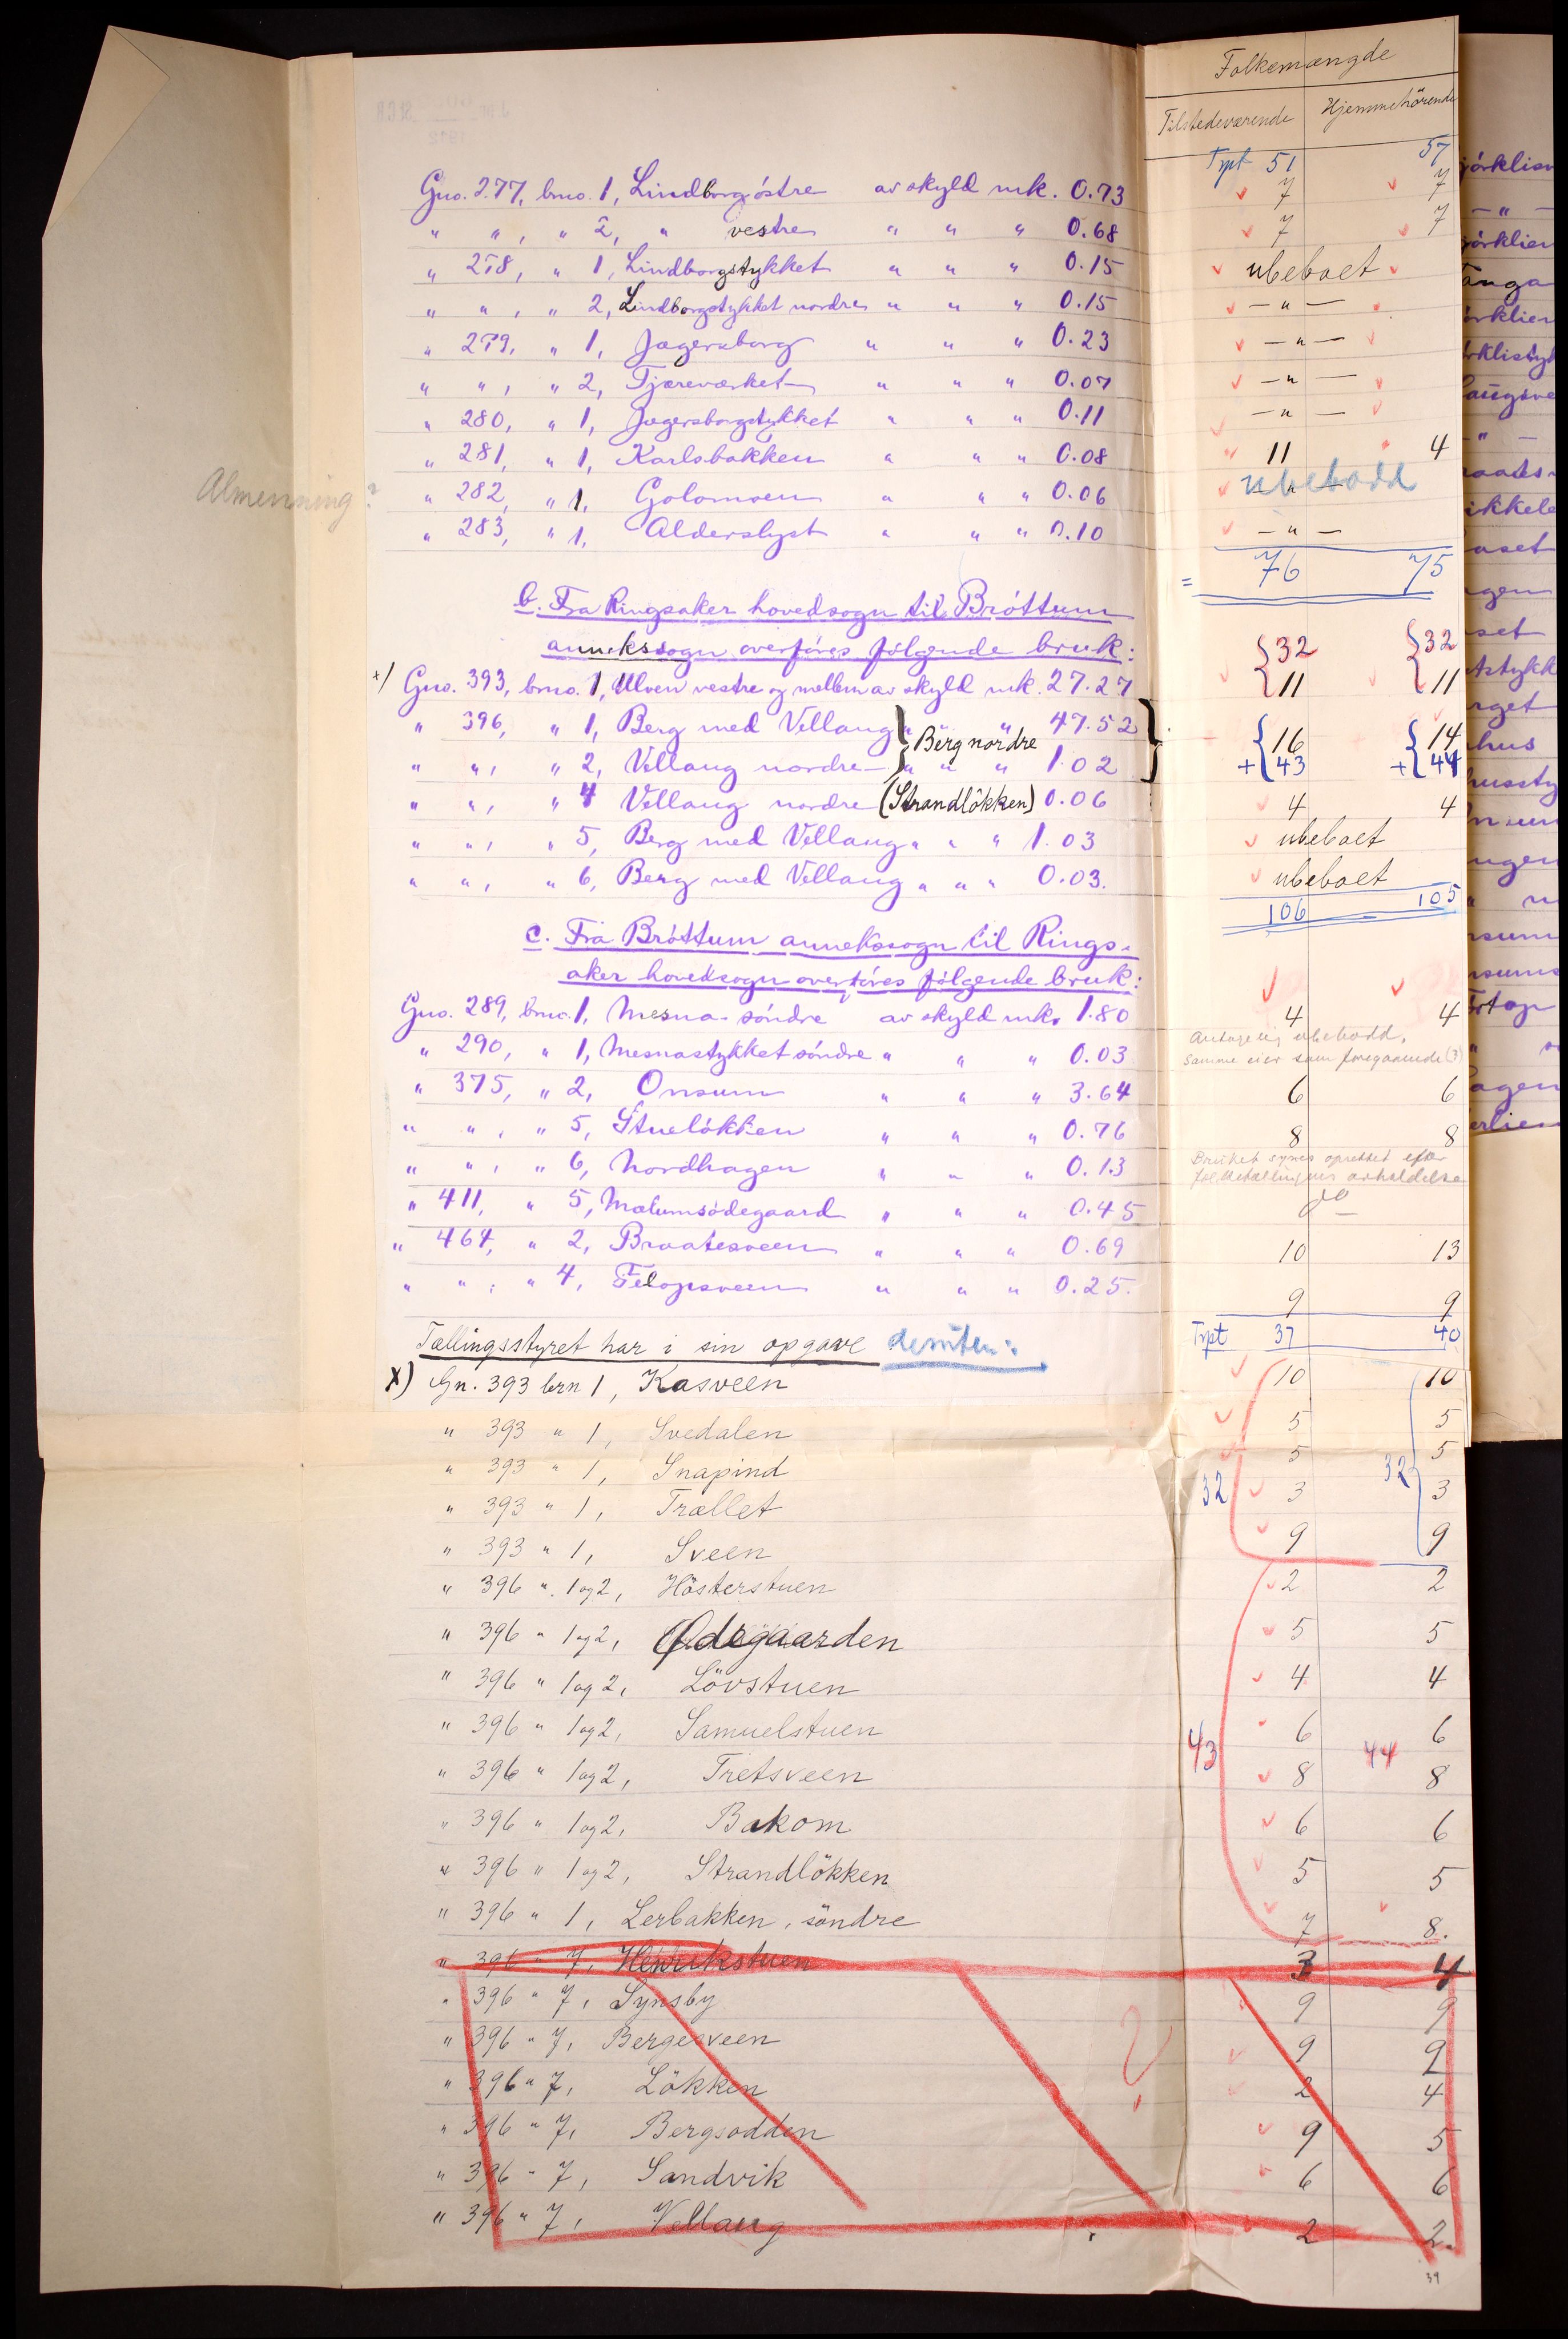 Folkemængde
Tilstedeværende Hjemmehörende
Trpt 51 57
Gno. 277, bno. 1, Lindborg östre av skyld mk. 0.73 7 7
" ", " 2, " vestre " " " 0.68 7 7
" 278, " 1, Lindborgstykket " " " 0.15 ubeboet
" ", " 2, Lindborgstykket nordre " " " 0.15 — " —
" 279, " 1, Jagersborg " " " 0.23 — " —
" ", " 2, Tjæreværket " " " 0.07 — " —
" 280, " 1, Jagersborgstykket " " " 0.11 — " —
" 281, " 1, Karlsbakken " " " 0.08 11 4
Almenning? " 282, " 1, Golomoen " " " 0.06 — " — ubebodd
" 283, " 1, Alderslyst " " " 0.10 — " —
= 76 75
b. Fra Ringsaker hovedsogn til Bröttum
annekssogn overföres fölgende bruk:
+) Gno. 393, bno. 1, Ulven vestre og mellem av skyld mk. 27.27 {32 11 {32 11
" 396, " 1, Berg med Vellaug " " " 47.52 {16 {14
} Berg nordre
" ", " 2, Vellaug nordre " " " 1.02 +{43 +{44
" ", " 4 Vellaug nordre (Strandlökken) 0.06 4 4
" ", " 5, Berg med Vellaug " " " 1.03 ubeboet
" ", " 6, Berg med Vellaug " " " 0.03. ubeboet
106 105
c. Fra Bröttum annekssogn til Rings-
aker hovedsogn overföres fölgende bruk:
Gno. 289, bno. 1, Mesna söndre av skyld mk. 1.80 4 4
Antagelig ubebodd.
" 290, " 1, Mesnastykket söndre " " " 0.03 Samme eier som foregaaende (?)
" 375, " 2, Onsum " " " 3.64 6 6
" ", " 5, Stuelökken " " " 0.76 8 8
Bruket synes oprettet efter
" ", " 6, Nordhagen " " " 0.13 folketællingens avholdelse
" 411, " 5, Mælumsödegaard " " " 0.45 do
" 464, " 2, Braatesveen " " " 0.69 10 13
" ", " 4, Felopsveen " " " 0.25. 9 9
Trpt 37 40
Tællingsstyret har i sin opgave desuten:
x) Gn. 393 brn 1, Kasveen 10 10
" 393 " 1, Svedalen 5 5
" 393 " 1, Snapind 5 5
32 32
" 393 " 1, Trællet 3 3
" 393 " 1, Sveen 9 9
" 396 " 1 og 2, Hösterstuen 2 2
" 396 " 1 og 2, Ödegaarden 5 5
" 396 " 1 og 2, Lövstuen 4 4
" 396 " 1 og 2, Samuelstuen 6 6
43 44
" 396 " 1 og 2, Tretsveen 8 8
" 396 " 1 og 2, Bakom 6 6
" 396 " 1 og 2, Strandlökken 5 5
" 396 " 1, Lerbakken, söndre 7 8.
" 396 " 7, Henrikstuen 3 4
" 396 " 7, Synsby 9 9
" 396 " 7, Bergesveen 9 9
?
" 396 " 7, Lökken 2 4
" 396 " 7, Bergsodden 9 5
" 396 " 7, Sandvik 6 6
" 396 " 7, Vellaug 2 2.
39